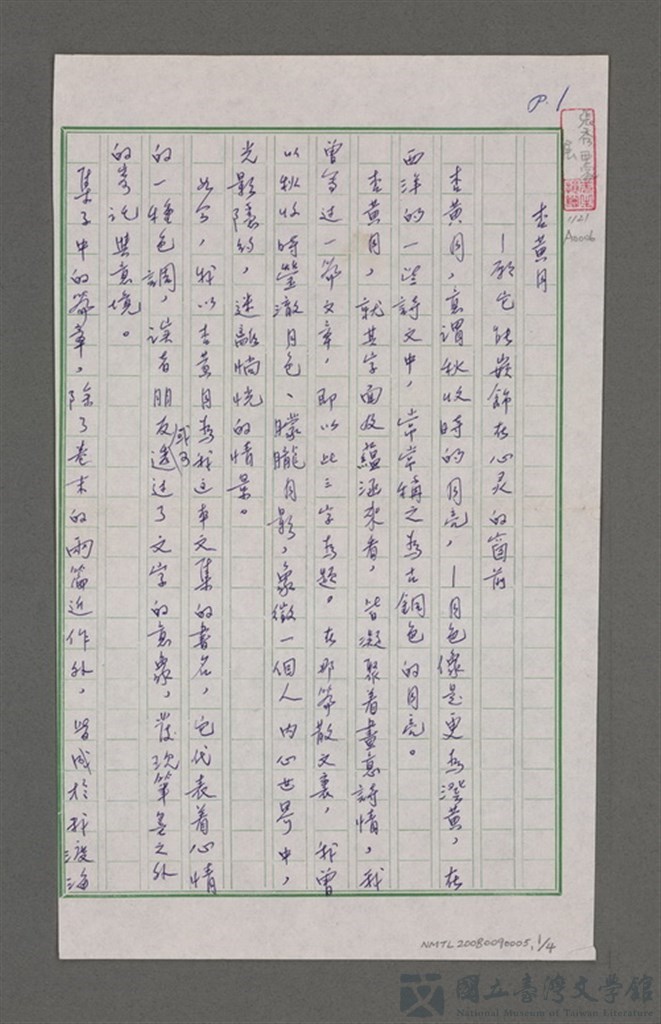 P.1
杏黄月
—願它能嵌飾在心灵的窗前
杏黄月，意謂秋收時的月亮，—月色像是更為澄黄，在
西洋的一些詩文中，常常稱之為古銅色的月亮。
杏黄月，就其字面及蘊涵來看，皆凝聚着畫意詩情，我
曾寫过一篇文章，即以此三字為題。在那篇散文裏，我曾
以秋收時瑩澈月色、朦朧月影，象徵一個人內心世界中，
光影隱約，迷離惝恍的情景。
如今，我以杏黄月為我这本文集的書名，它代表着心情
的一種色調，讀者朋友或可透过了文字的意象，發現筆墨之外
的寄託與意境。
集子中的篇章，除了卷末的兩篇近作外，皆成於我渡海
1121
NMTL20080090005, 1/4
國立臺灣文學館
National Museum of Taiwan Literature